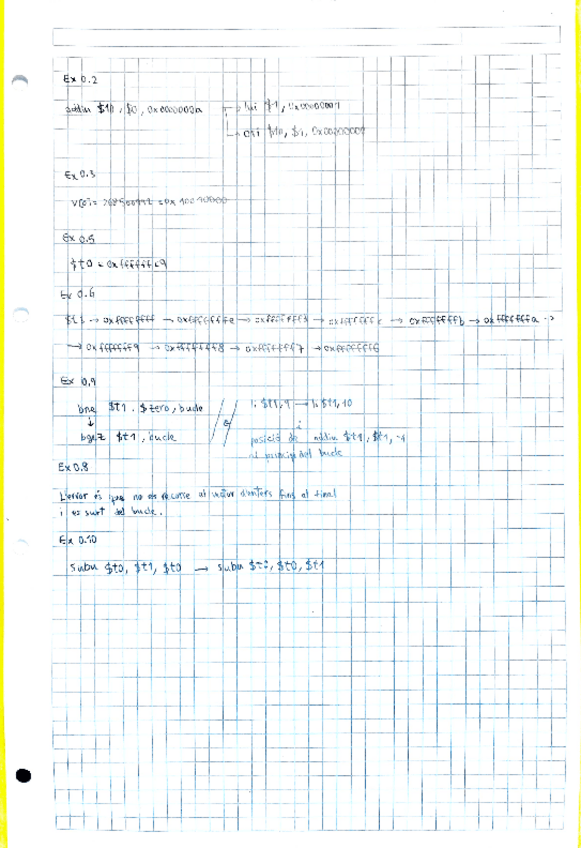 Ex 0.2
addiu $10, $0, 0x0000000a → lui $1, 0x00000001
→ ori $10, $1, 0x00000000
Ex 0.3
Ex 0.5
$t0 =
Ex 0.6
→ 0xffffffff → 0xfffffffe → → → 0xfffffffb → 0xfffffffa →
→ 0xfffffff9 → 0xfffffff8 → 0xfffffff7 → 0xfffffff6
Ex 0,9
bne $t1, $zero, bucle // li $t1, 9 → li $t1, 10
↓ i
bgez $t1, bucle posició de addiu $t1, $t1, -1
al principi del bucle
Ex 0.8
L'error és que no es recorre el vector d'enters fins al final
i es surt del bucle.
Ex 0.10
subu $t0, $t1, $t0 → subu $t0, $t0, $t1